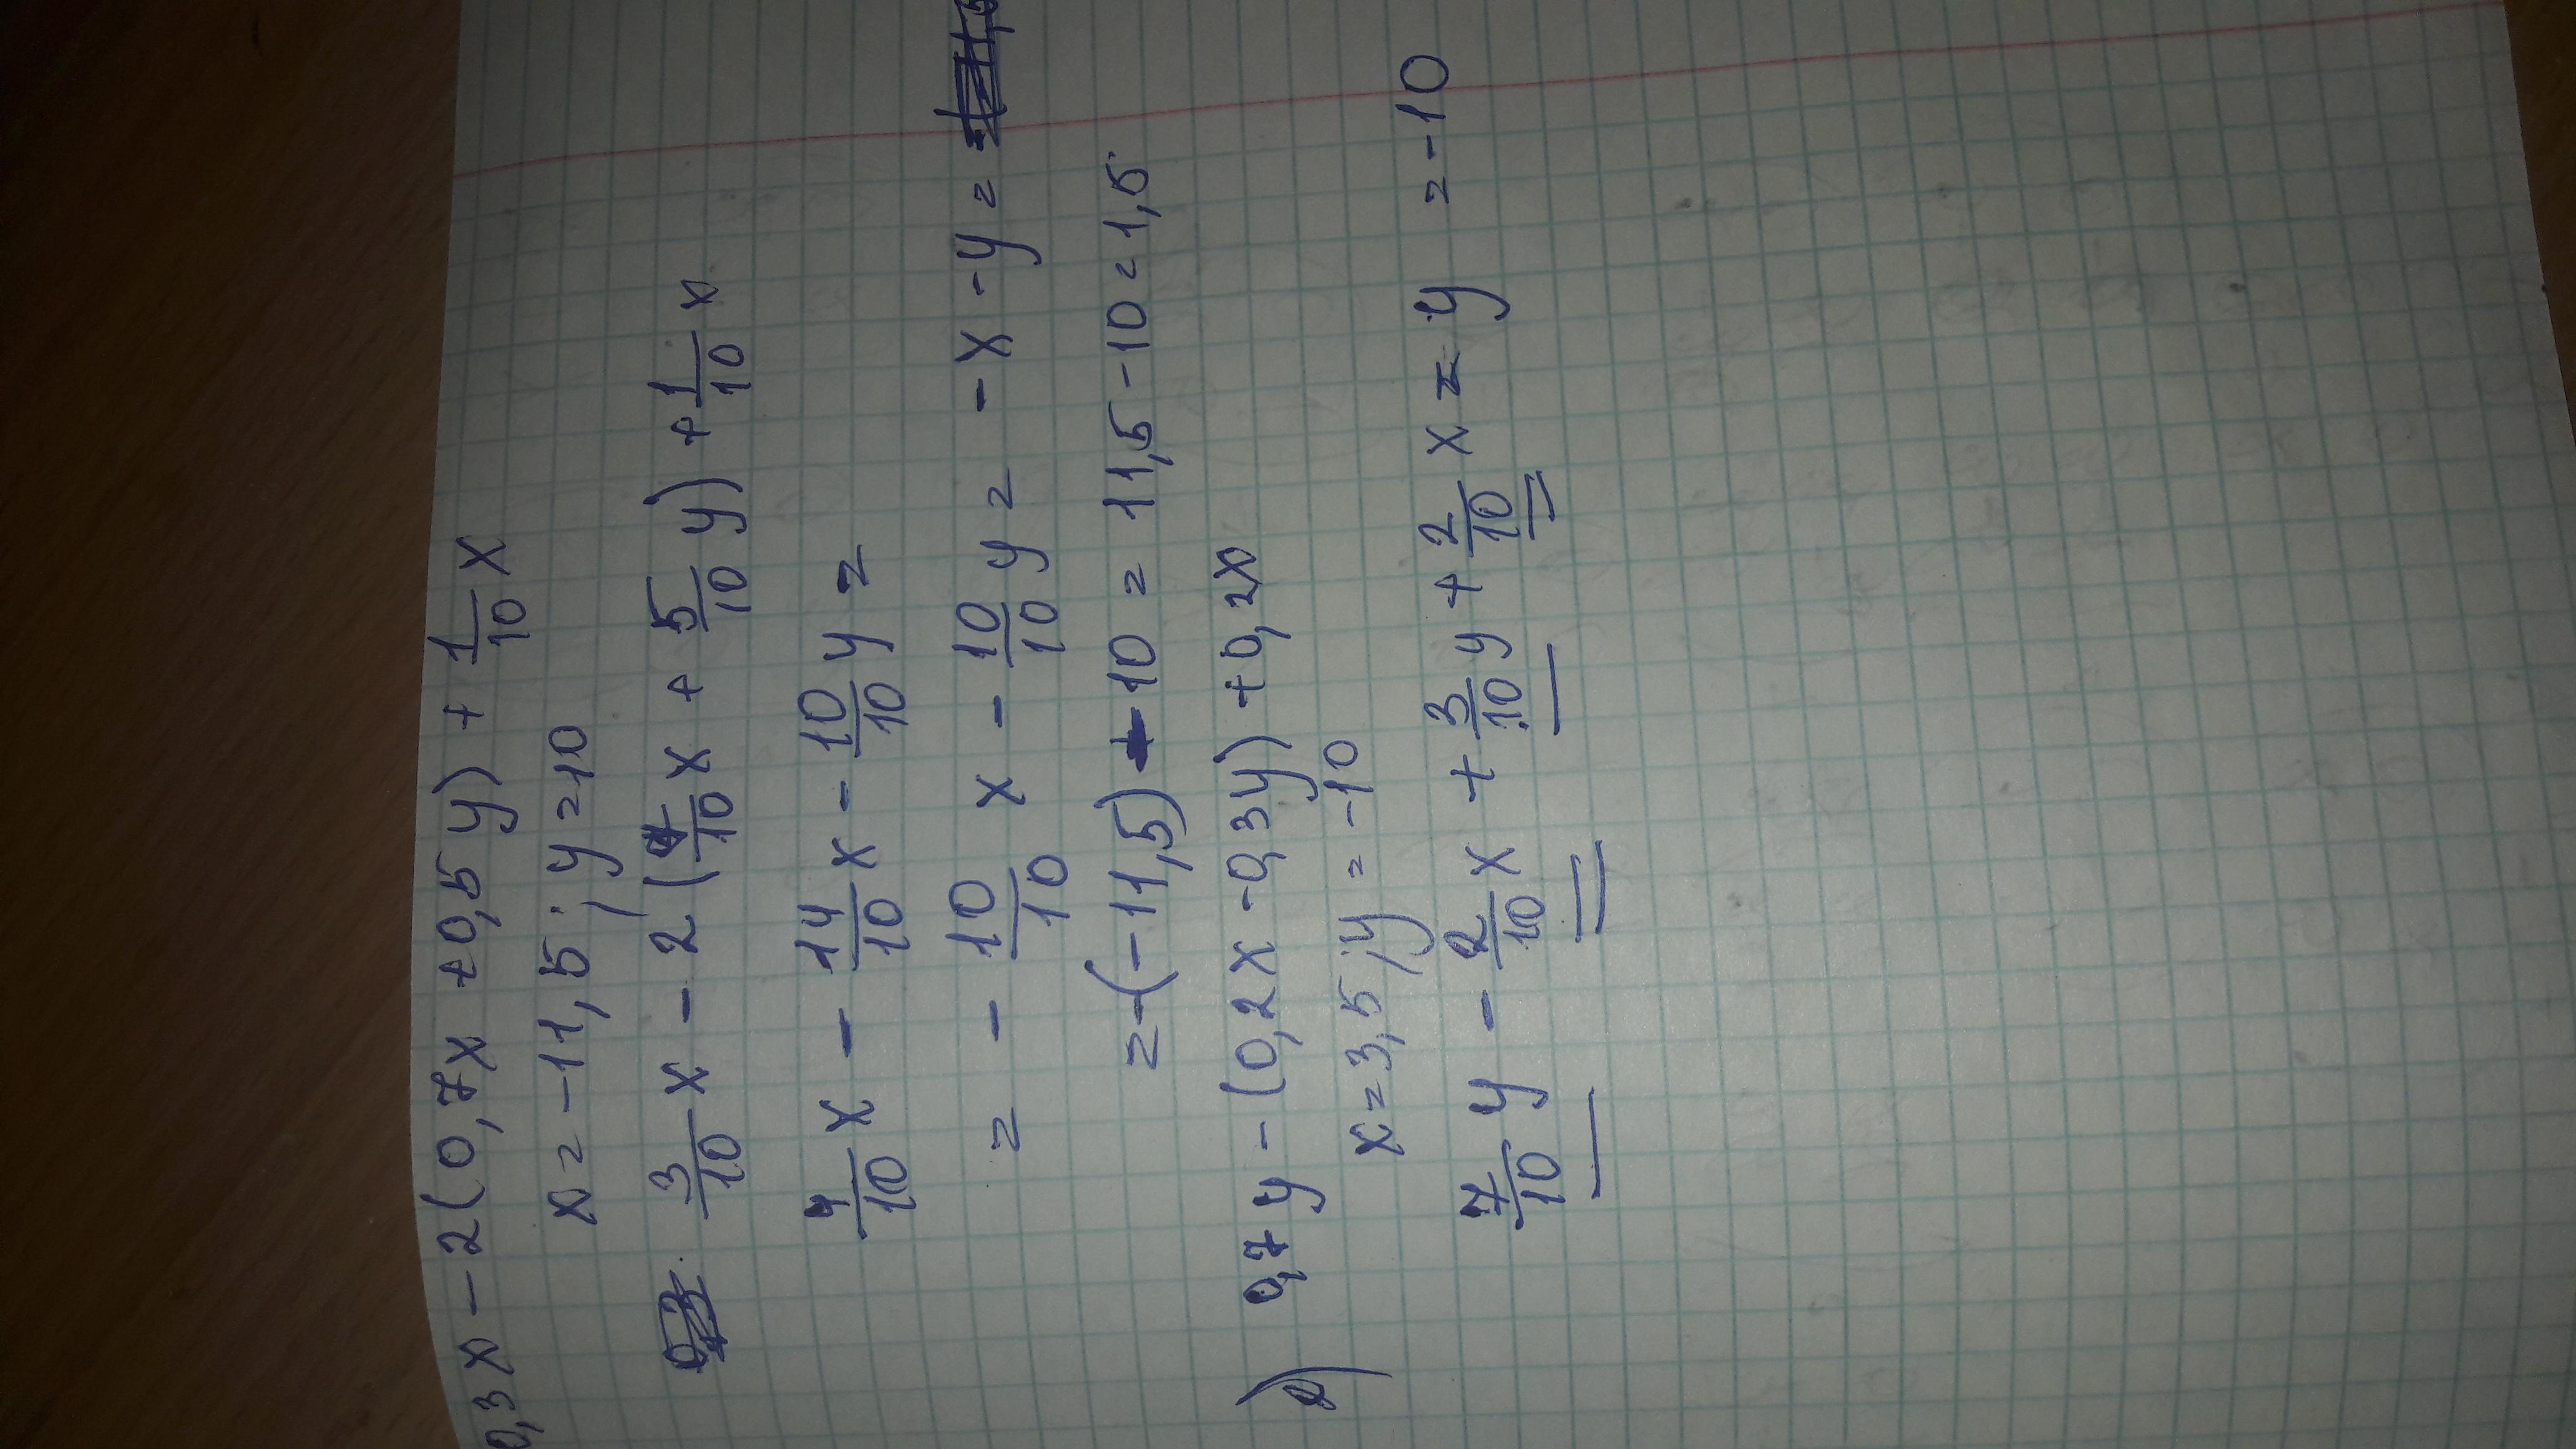 0,3x - 2(0,7x + 0,5y) + 1/10 x
x = -11,5; y = 10
3/10 x - 2(7/10 x + 5/10 y) + 1/10 x
4/10 x - 14/10 x - 10/10 y =
= - 10/10 x - 10/10 y = -x - y =
= -(-11,5) - 10 = 11,5 - 10 = 1,5
2) 0,7y - (0,2x - 0,3y) + 0,2x
x = 3,5; y = -10
7/10 y - 2/10 x + 3/10 y + 2/10 x = y = -10